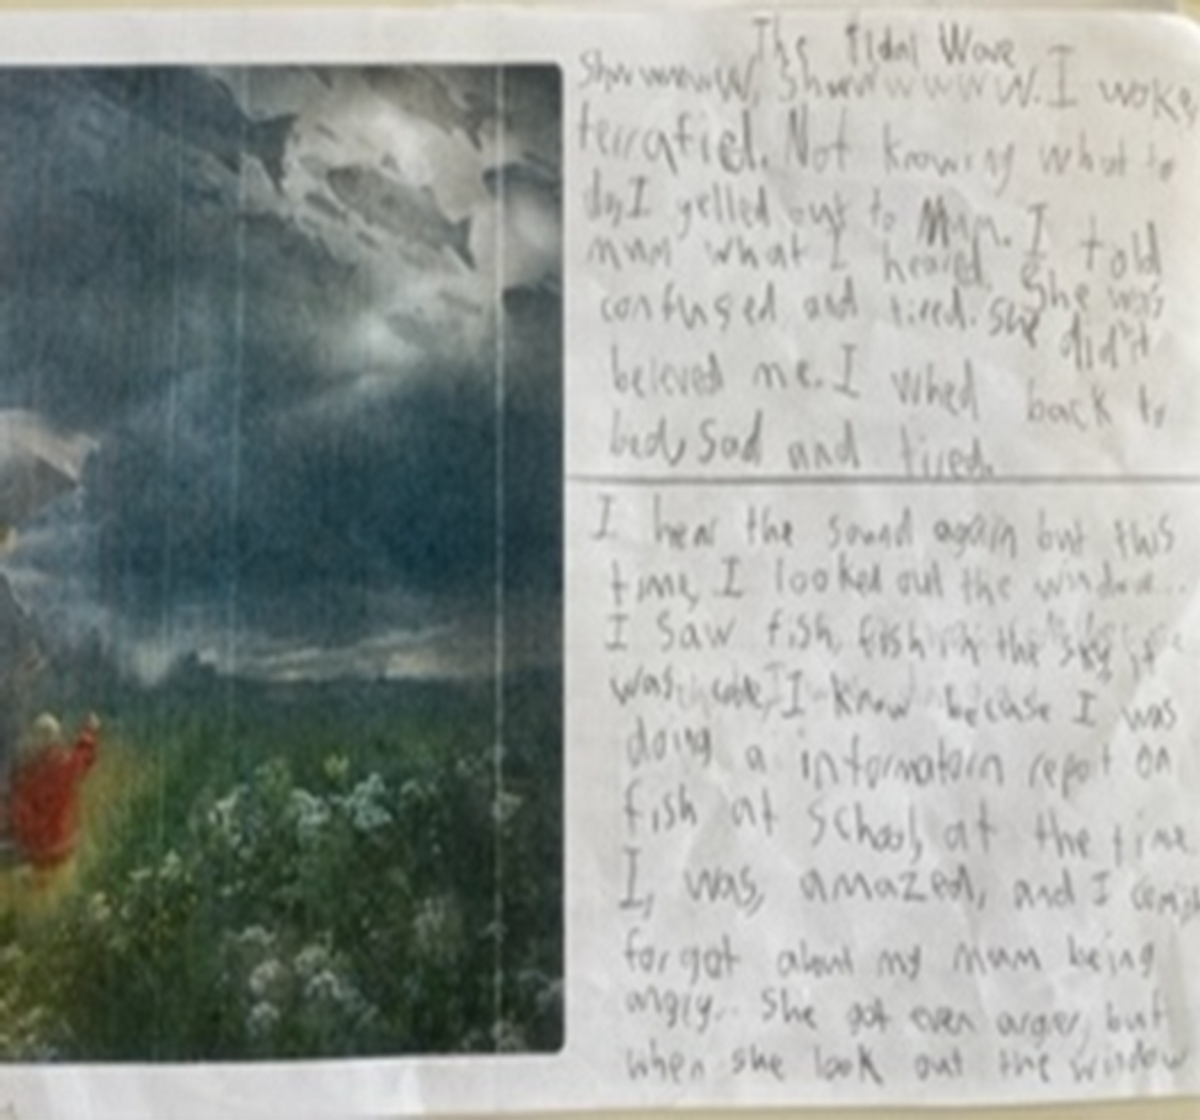 The Tidal Wave
Shwwwww, Shwwwwwww. I woke
terrafied. Not knowing what to
do, I yelled out to Mum. I told
mum what I heared. She was
confused and tired. She didn't
beleved me. I whed back to
bed, sad and tired.
I hear the sound again but this
time, I looked out the window...
I saw fish, fish in the sky, it
was, I know because I was
doing a informatoin repot on
fish at school, at the time
I, was, amazed, and I
forgot about my mum being
angry.. She got even arger, but
when she look out the window